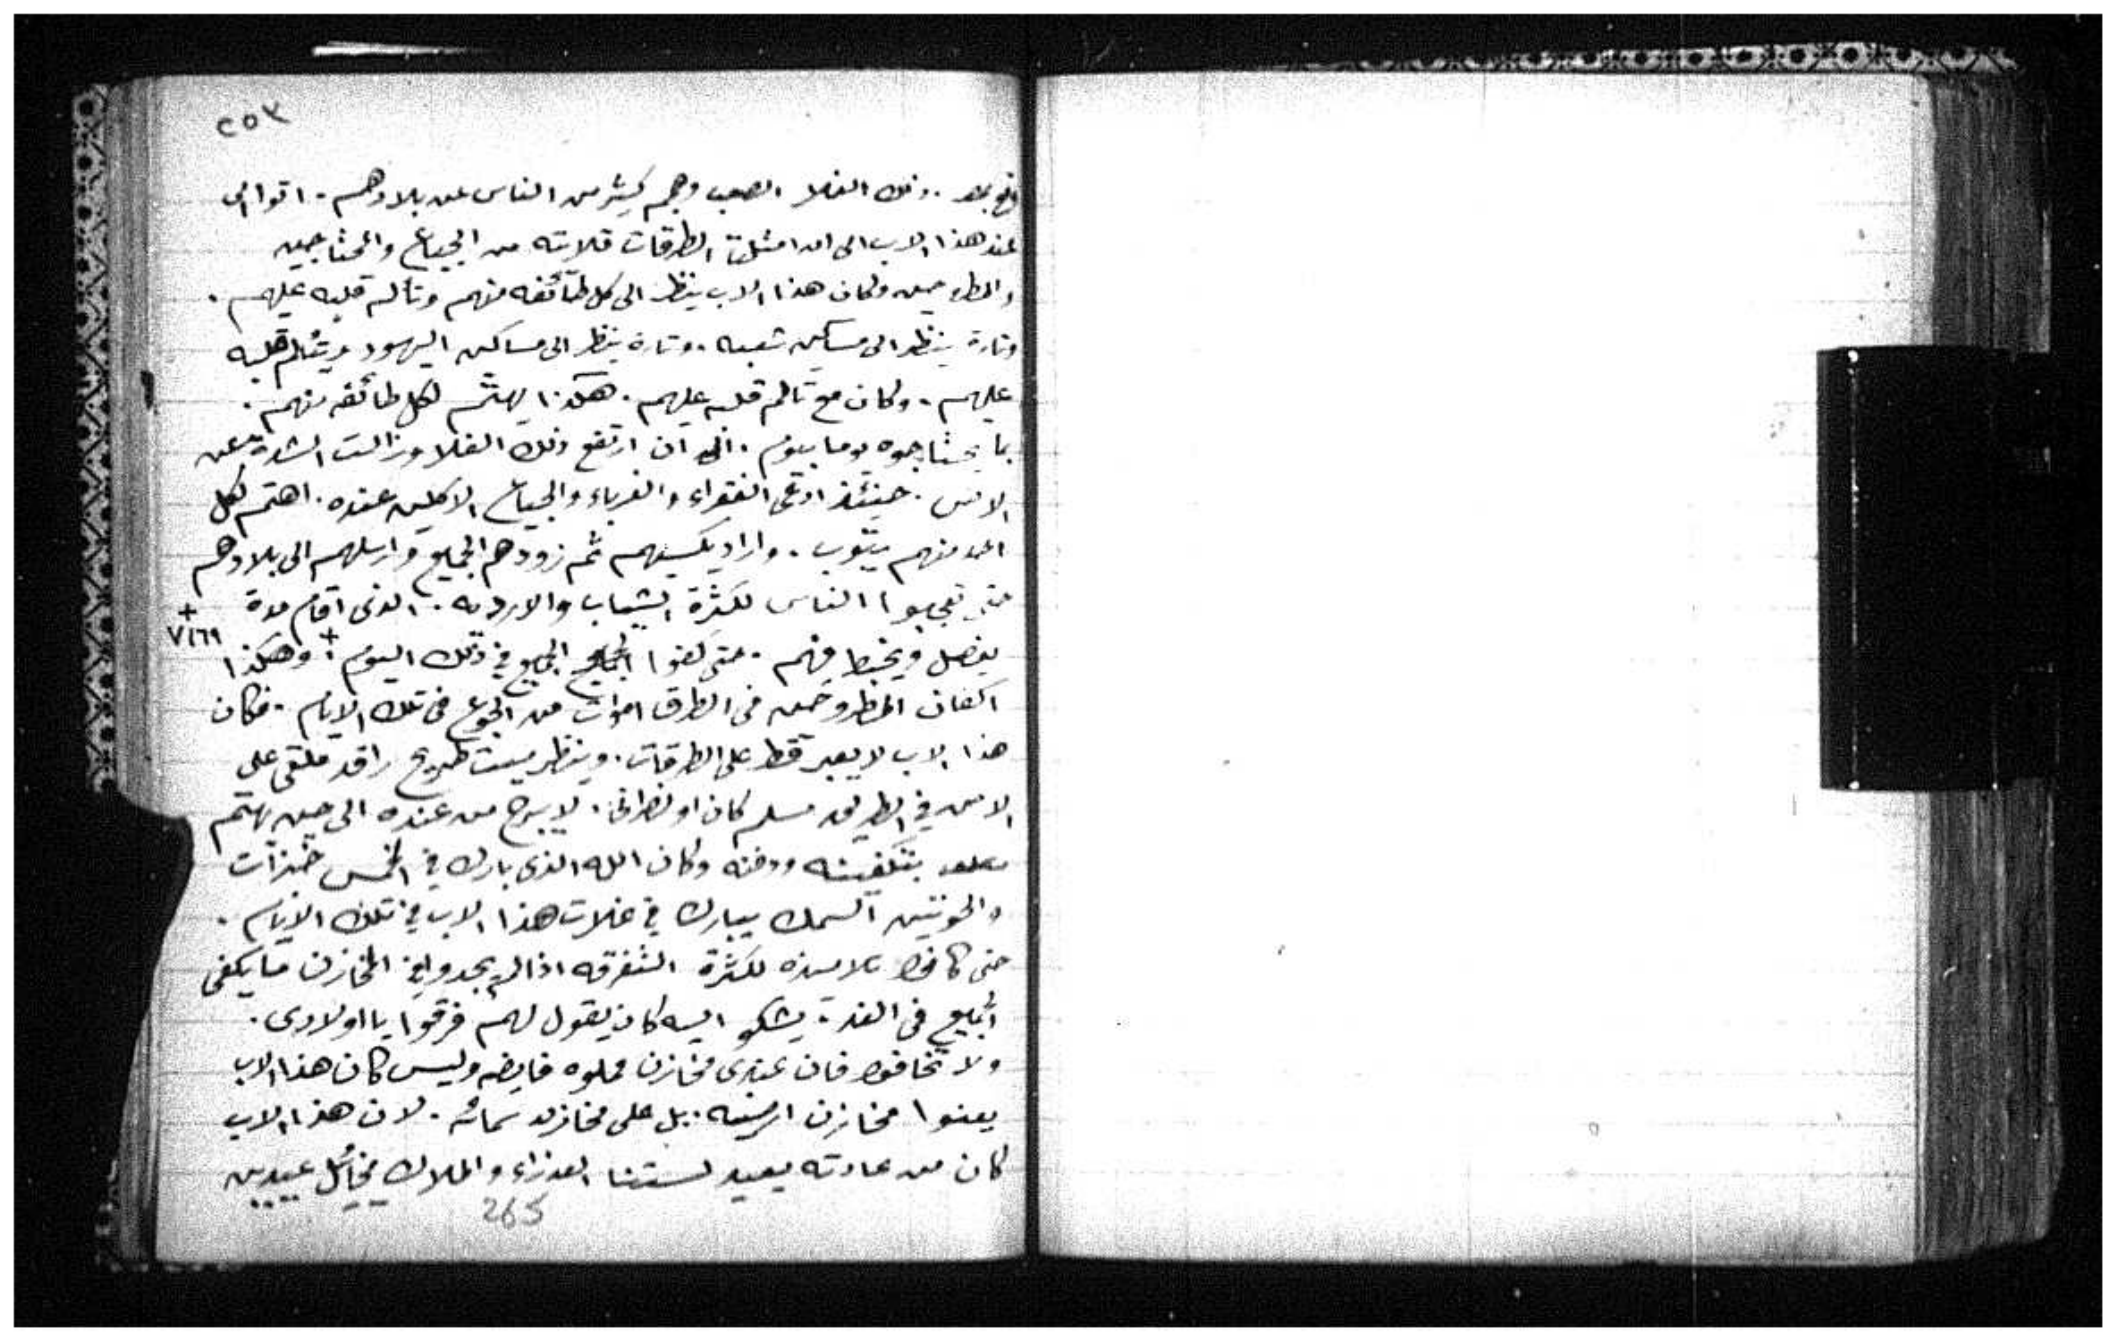 ٢٥٣
ذلك الغلا الصعب وهم كثير من الناس عن بلادهم. اتوا الى
عند هذا الاب الى ان امتلت الطرقات قلايته من الجياع والمحتاجين
والمطروحين وكان هذا الاب ينظر الى كل طائفه منهم وتالم قلبه عليهم.
وتارة ينظر الى مساكين شعبه. وتارة ينظر الى مساكين اليهود ويتالم قلبه
عليهم. وكان مع تالم قلبه عليهم. هكذا يهتم لكل طائفه منهم.
بما يحتاجوه يوما بيوم. الى ان ارتفع ذلك الغلا وزالت الشدة عن
الارض. حينئذ ادعى الفقراء والغرباء والجياع الاكلين عنده. اهتم لكل
احد منهم بتوب. واراد يكسيهم ثم زودهم الجميع وارسلهم الى بلادهم
حتى تعجبوا الناس لكثرة الثياب والارديه. الذى اقام مدة
+ ٧١٦٩
يفصل ويخيط فيهم. حتى كفوا الجميع في ذلك اليوم + وهكذا
اكفان المطروحين فى الطرق اموات من الجوع فى تلك الايام. فكان
هذا الاب لا يعبر قط على الطرقات. وينظر ميت طريح راقد ملقى على
الارض في الطريق مسلم كان او نصرانى. لا يبرح من عنده الى حين يهتم
بتكفينه ودفنه وكان الله الذى بارك في الخمس خبزات
والحوتين السمك يبارك في غلات هذا الاب في تلك الايام.
حتى كانوا تلاميذه لكثرة التفرقه اذا لم يجدوا في المخازن ما يكفى
الجميع فى الغد. يشكو اليه كان يقول لهم فرقوا يا اولادى.
ولا تخافوا فان عندى مخازن مملوه فايضه وليس كان هذا الاب
يعنوا مخازن ارضيه. بل على مخازن سمائه. لان هذا الاب
كان من عادته يعيد لستنا العذراء والملاك ميخائيل عيدين
265